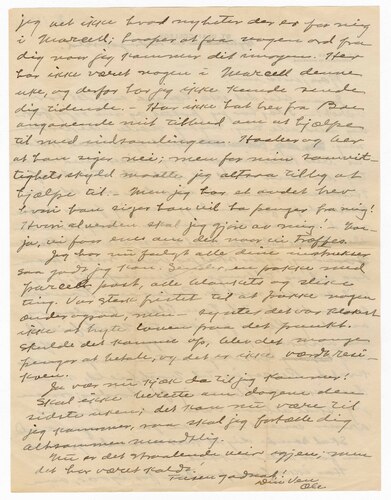 jeg vet ikke hvad nyheter der er for mig
i Marcell; haaper at faa nogen ord fra
dig naar jeg kommer dit imorgen. Her
har ikke været nogen i Marcell denne
uke, og derfor har jeg ikke kunde sende
dig tidende. – Har ikke hat brev fra Boe
angaaende mit tilbud om at hjælpe
til med indsamlingen. Haaber og ber
at han siger nei; men for min samvit-
tighets skyld maatte jeg altsaa tilby at
hjælpe til. – Men jeg har et andet brev
hvori han siger han vil ha penger fra mig!
Hvori alverden skal jeg gjøre av mig. –
ja, vi faar enes om det naar vi træffes.
Jeg har nu fulgt alle dine instrukser
saa godt jeg kan. Sender en pakke med
parcel post, alle blankets og slike
ting. Var sterk fristet til at pakke nogen
andre ogsaa, men syntes det var klokest
ikke at bryte loven paa det punkt.
Skulde det komme op, blev det mange
penger at betale, og det er ikke værdt risi-
koen.
Ja vær nu kjæk da til jeg kommer!
Skal ikke berette om dagene den
sidste uken; det kan nu være til
jeg kommer, saa skal jeg fortælle dig
altsammen mundtlig.
Nu er det straalende veir igjen, men
det har været koldt!
Tusen godnat!
Din ven
Ole